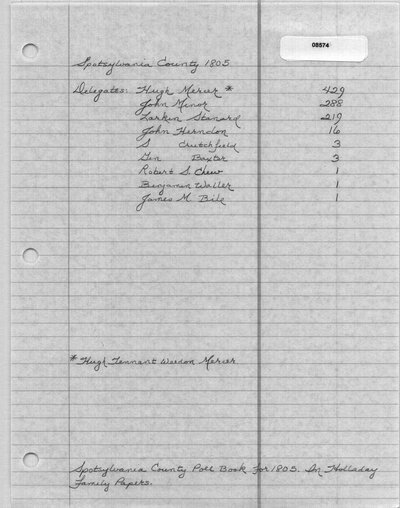 08574
Spotsylvania County 1805
Delegates: Hugh Mercer * 429
John Minor 288
Larkin Stanard 219
John Herndon 16
S Crutchfield 3
Gen Baxter 3
Robert S. Chew 1
Benjamin Waller 1
James M. Bile 1
* Hugh Tennant Weedon Mercer
Spotsylvania County Poll Book for 1805. In Holladay
Family Papers.